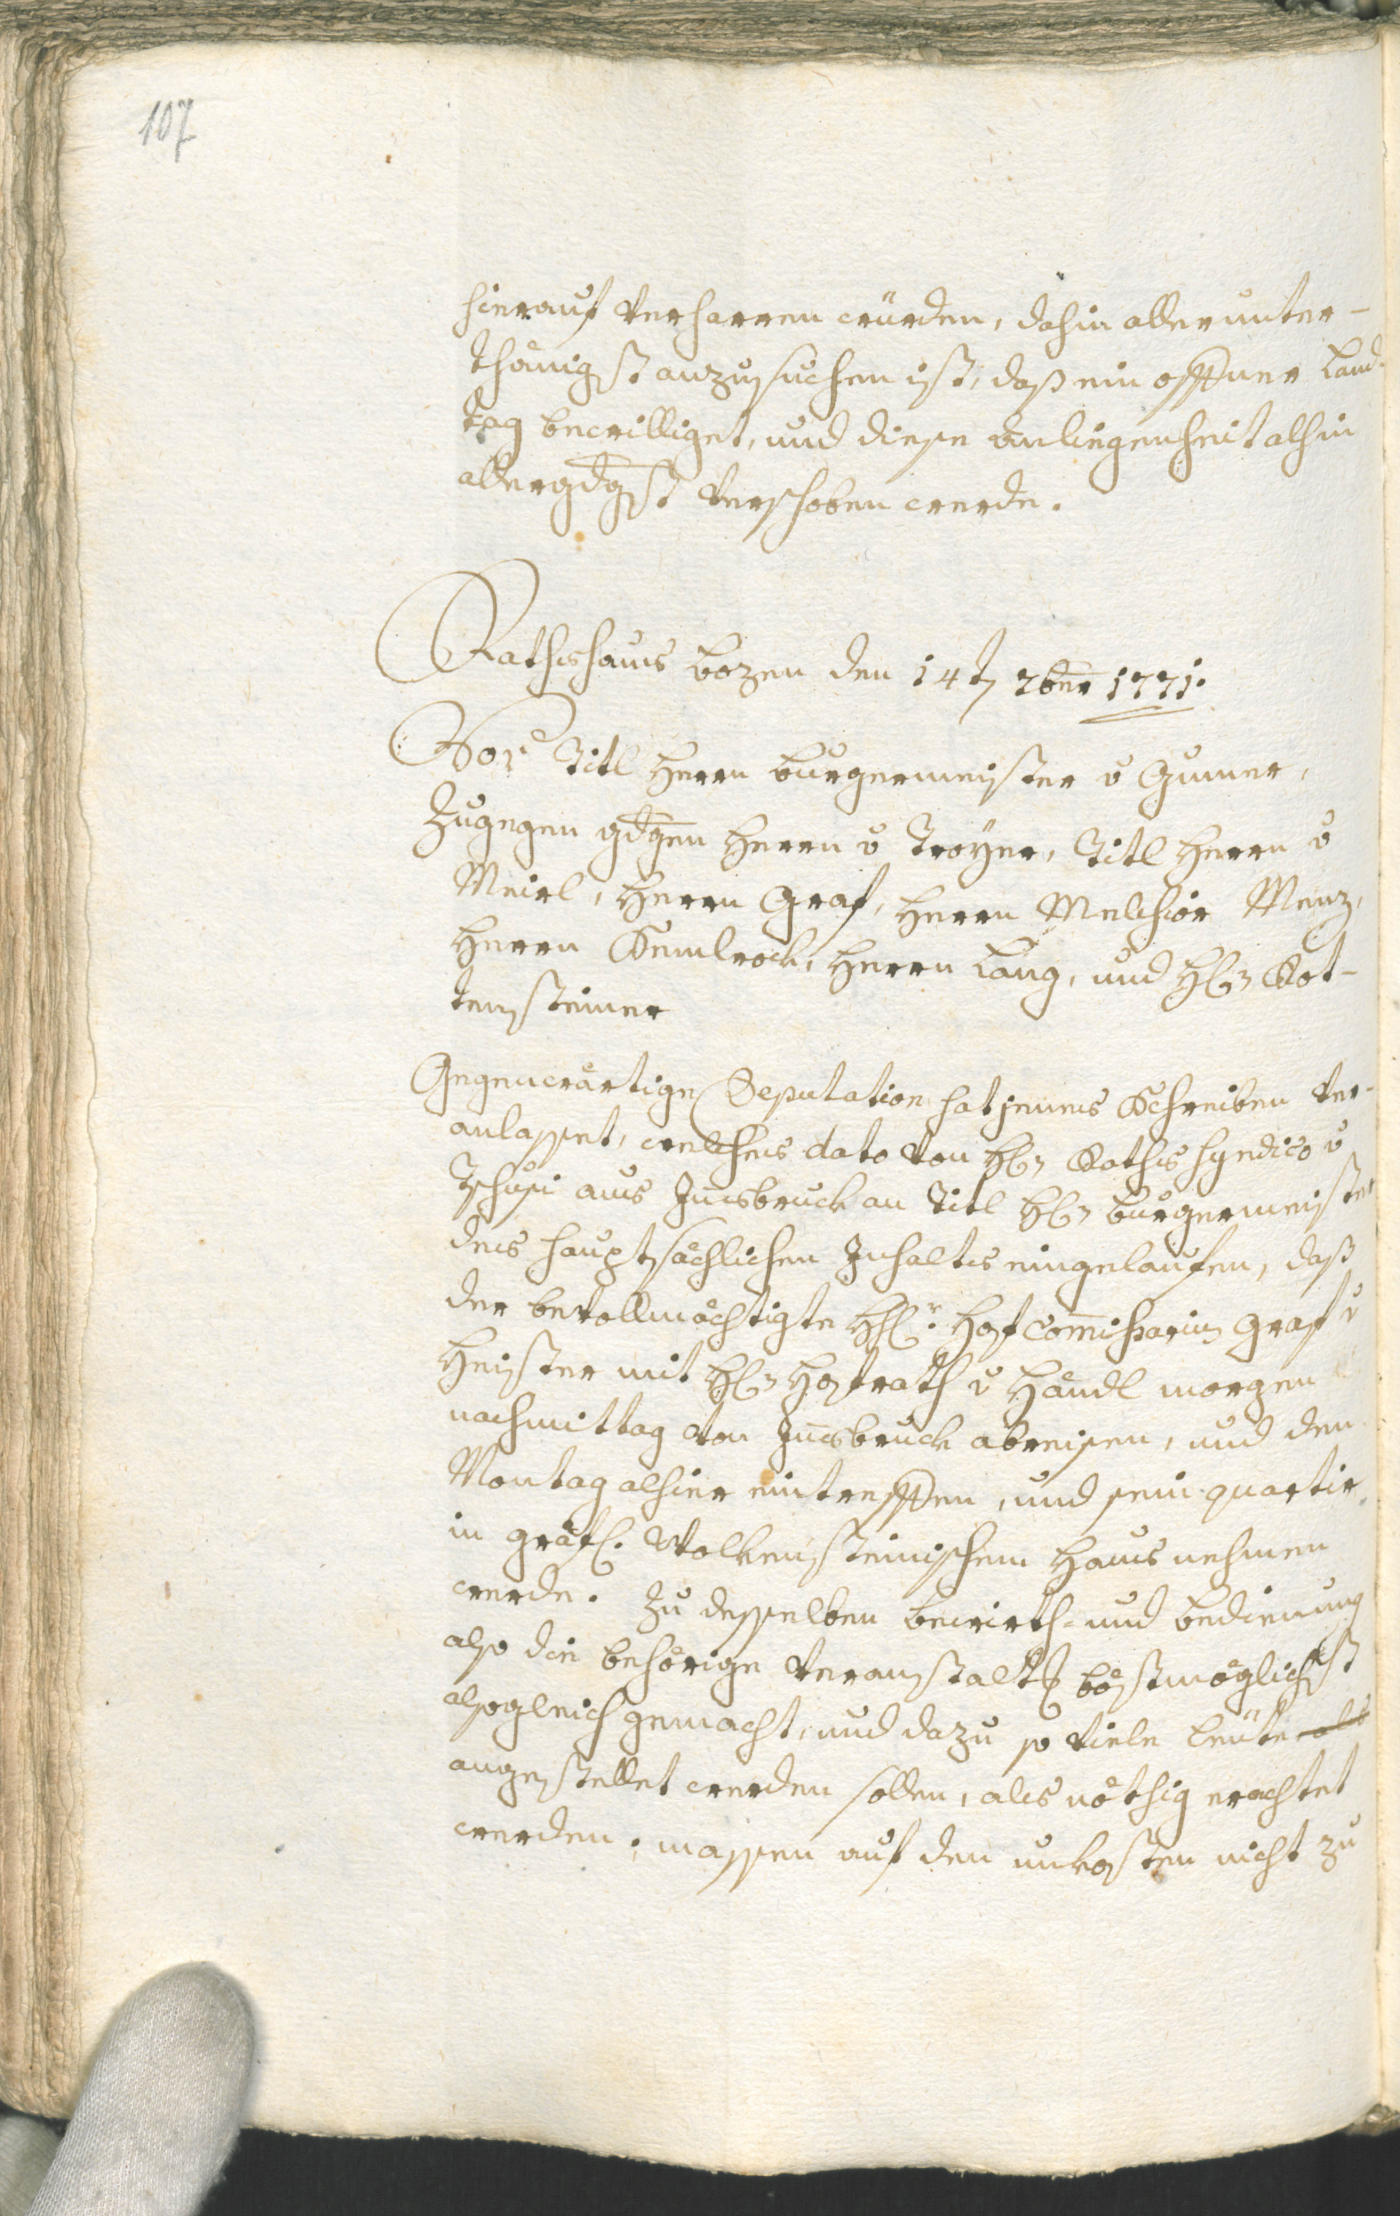 107
hierauf verharren würden, dahin aller unter-
thänigst anzusuchen ist, daß ein offner Land-
tag bewilliget, und diese Anliegenheit alhin
allergdgst verschoben werde.
Rathshaus Bozen den 14t 7ber 1771.
Vor Titl Herrn Burgermeister v Gumer,
Zugegen gdgen Herrn v Troÿer, Titl Herrn v
Meirl, Herrn Graf, Herrn Melchior Menz,
Herrn Kemlrock, Herrn Lang, und H: Rot-
tensteiner
Gegenwärtige Deputation hat jenes Schreiben ver-
anlasset, welches dato von H: Raths Syndico v
Tschusi aus Insbruck an Titl H: Burgermeister
des hauptsächlichen Inhalts eingelaufen, daß
der bevollmächtigte H:r Hofcommissarius Graf v
Heister mit H: Hofrath v Händl morgen
nachmittag von Insbruck abreisen, und den
Montag alhier eintreffen, und sein quartir
in gräfl. Wolkensteinischem Haus nehmen
werde. Zu desselben Bewirth- und Bedienung
also die behörige Veranstalt bostmöglichst
alsogleich gemacht, und dazu so viele Leüte als
angestellet werden sollen, als nöthig erachtet
werden; massen auf den unkosten nicht zu